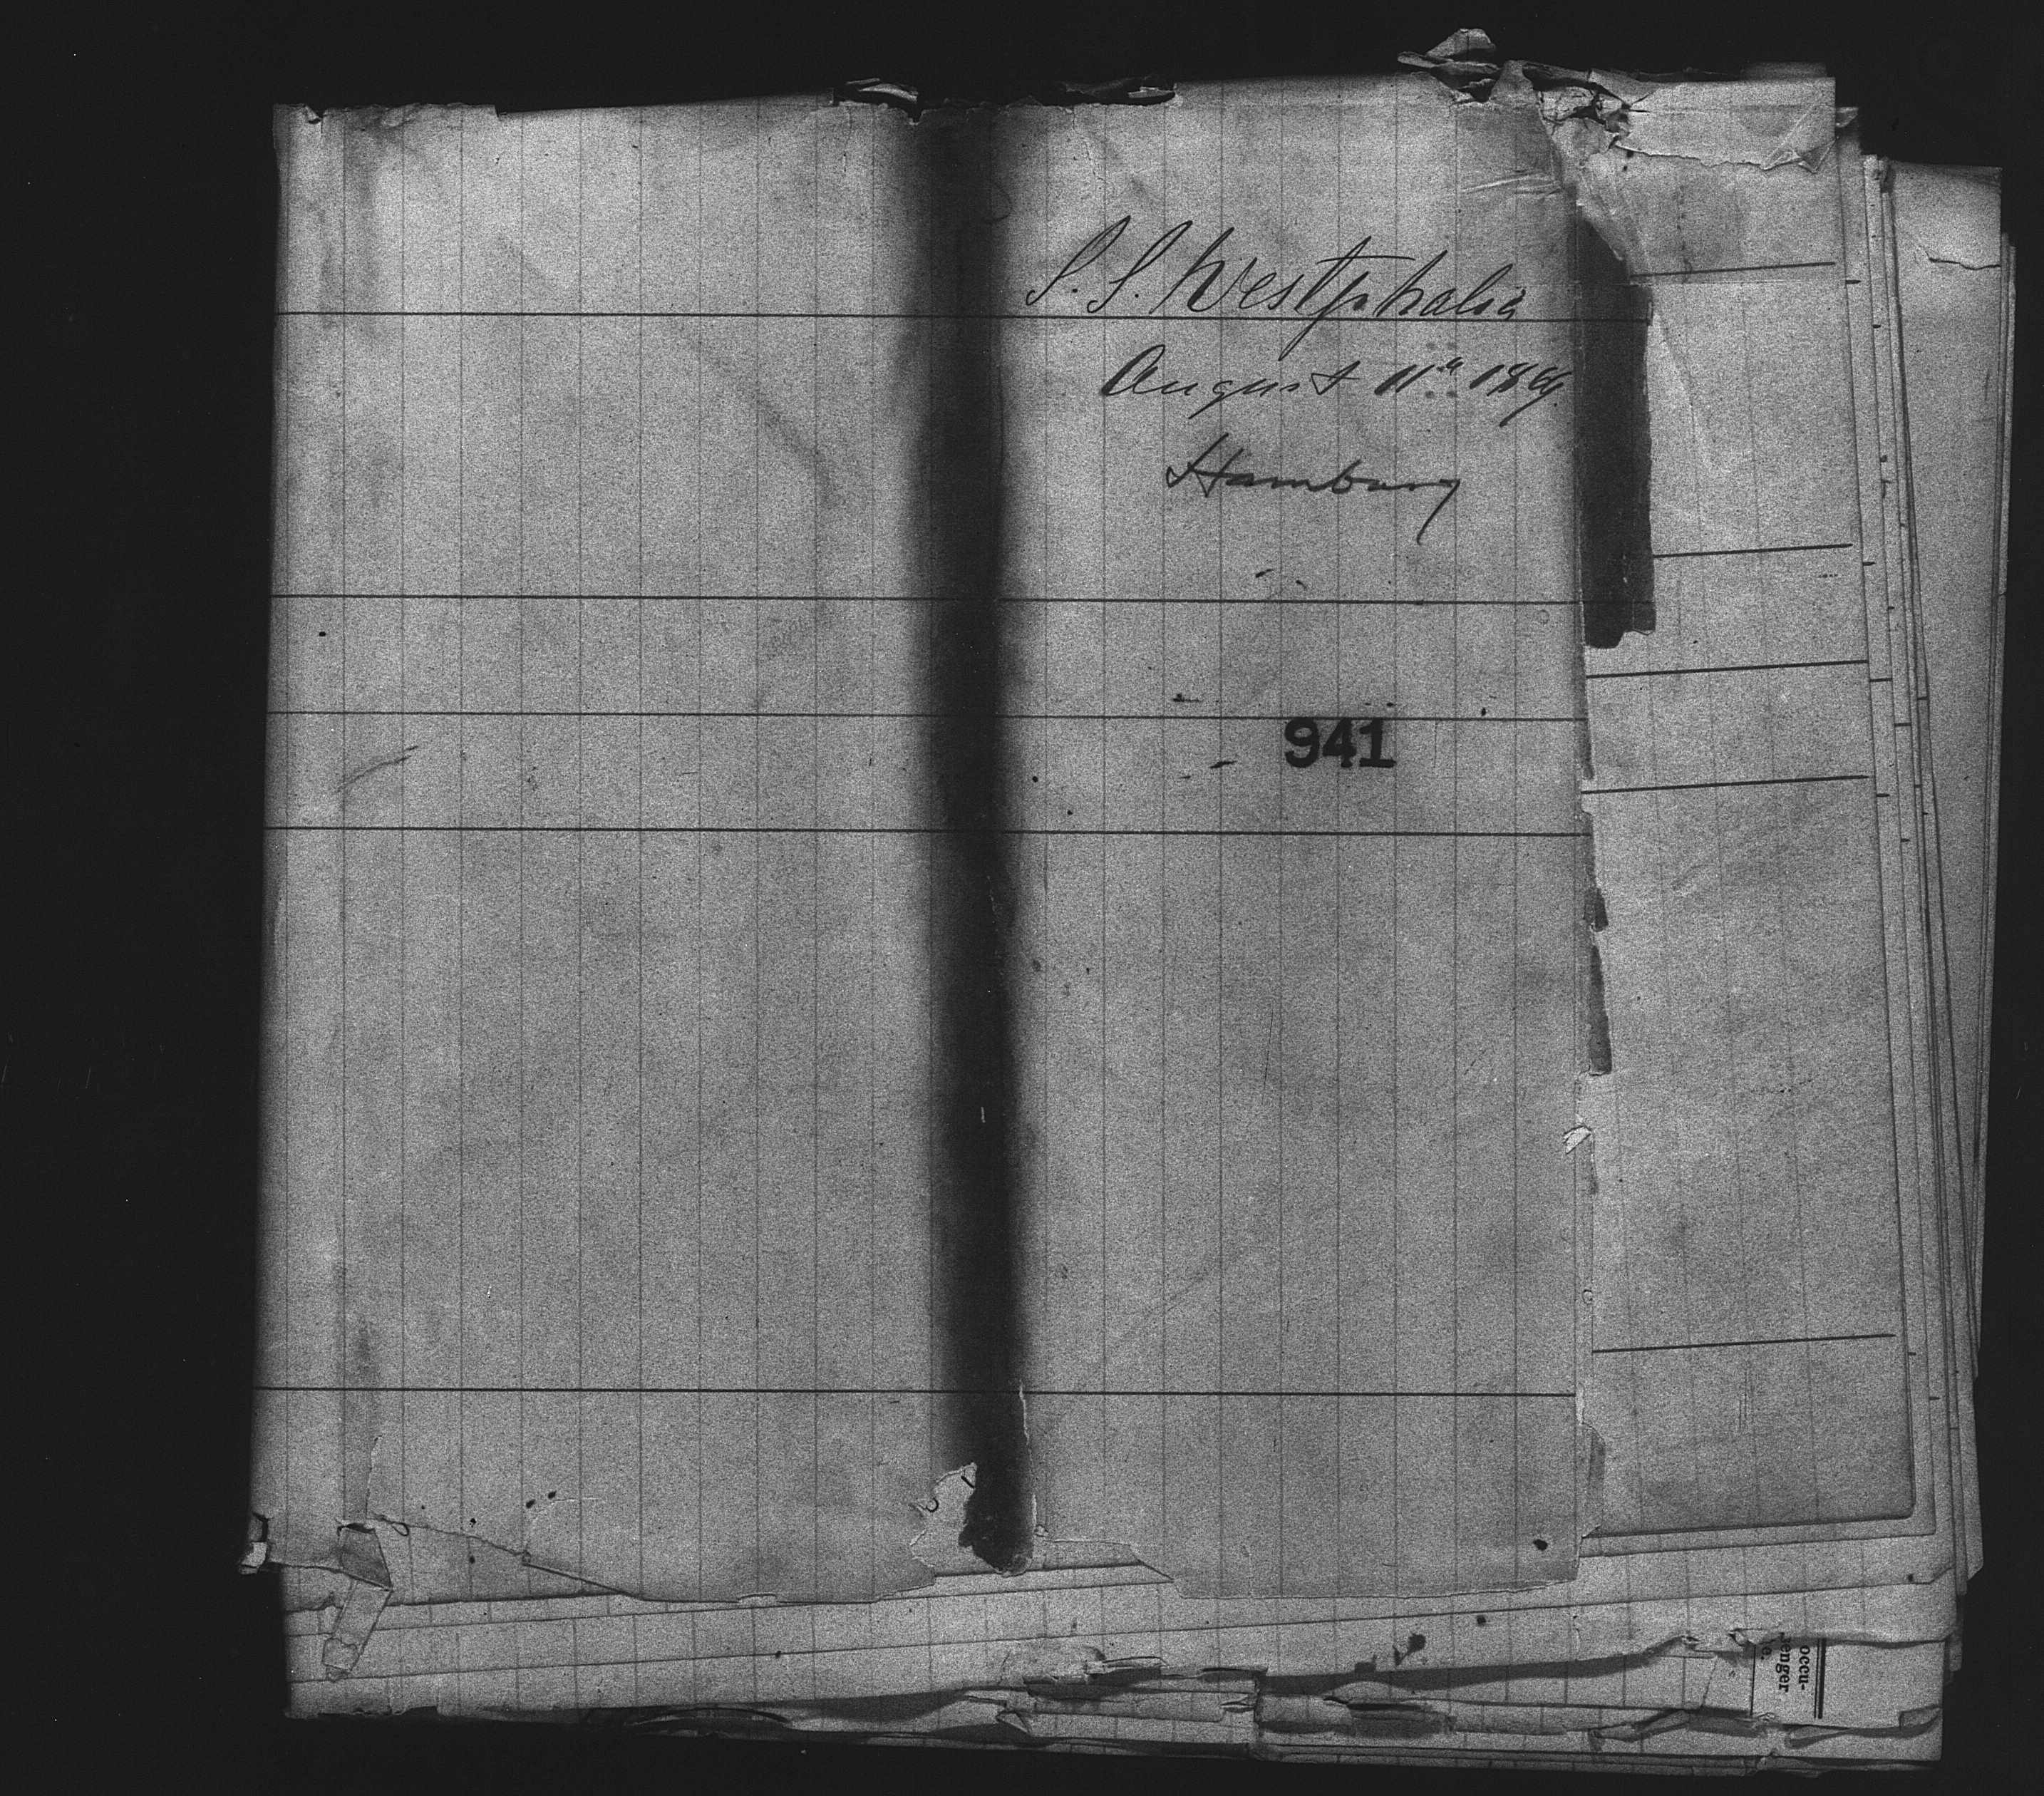 S. S. Westphalia
August 11th 1869.
Hamburg
941
occu-
senger
e.